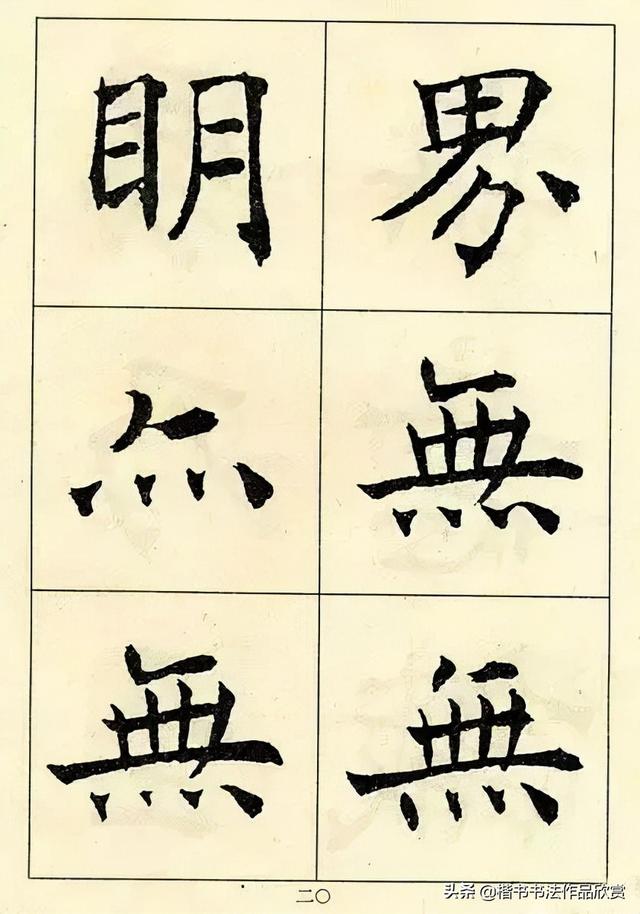 界
無
無
明
亦
無
二〇
头条 @楷书书法作品欣赏